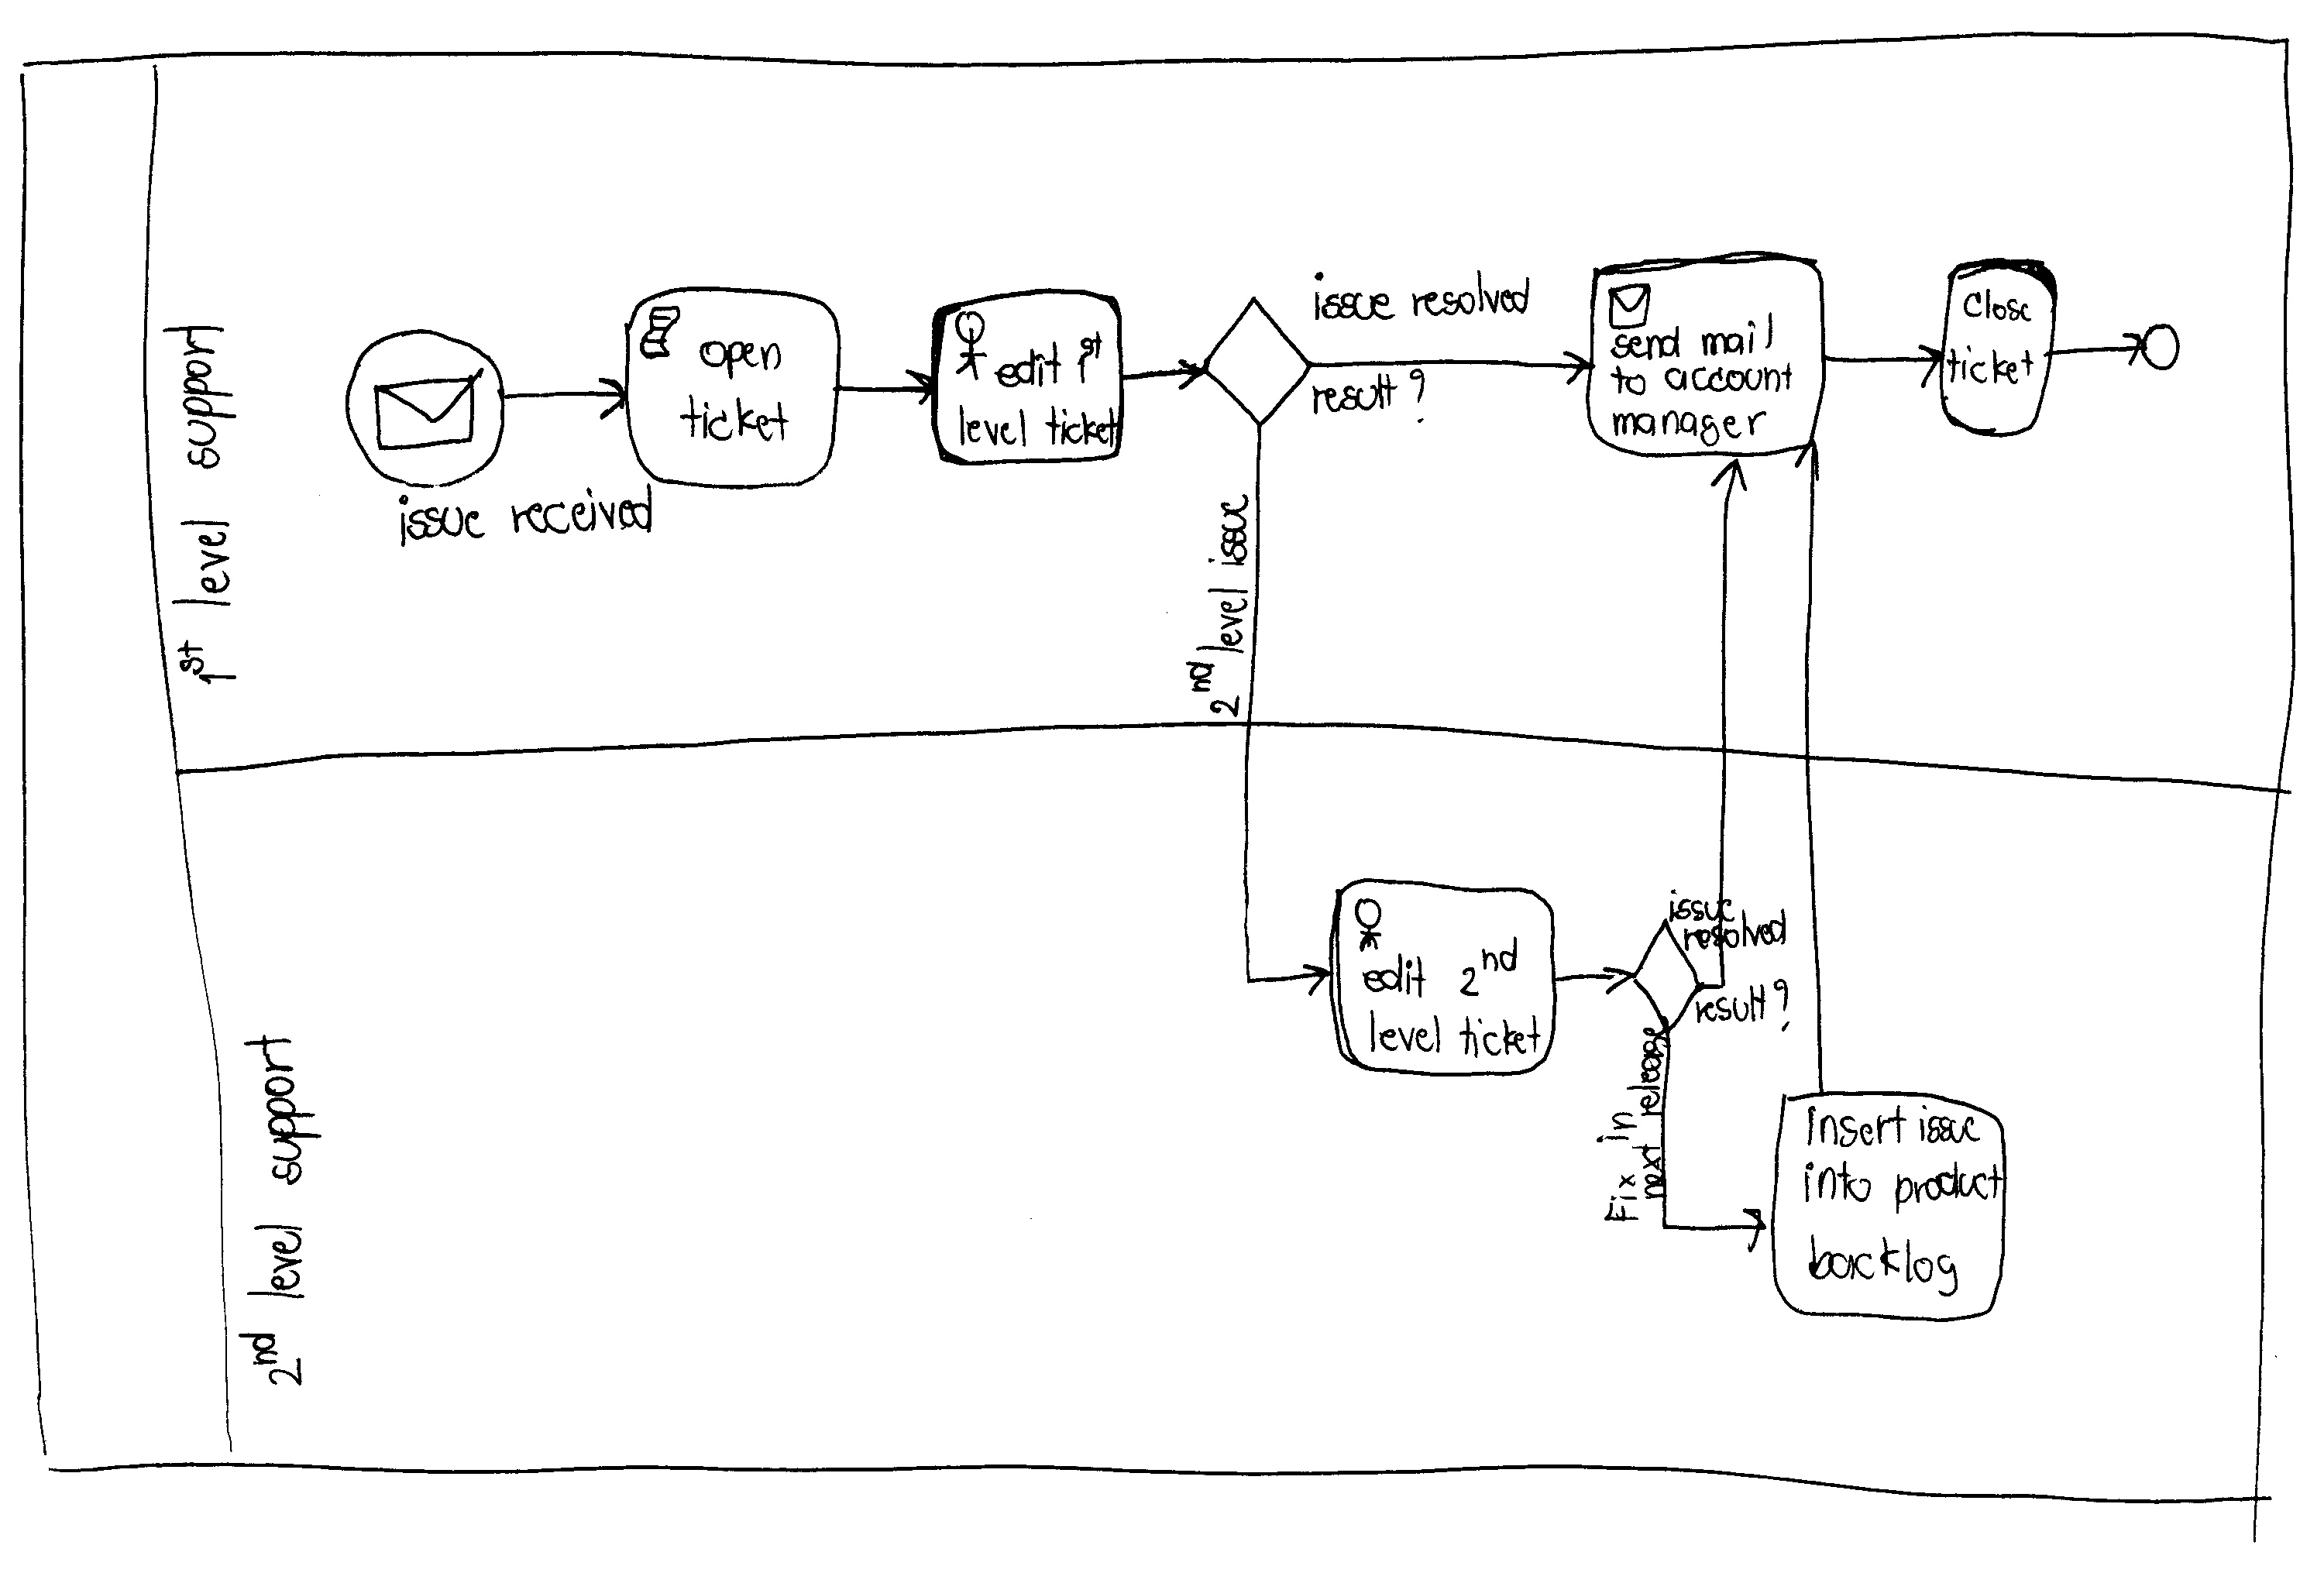 1st level support
issue received
open
ticket
edit 1st
level ticket
issue resolved
result?
send mail
to account
manager
close
ticket
2nd level issue
2nd level support
edit 2nd
level ticket
issue
resolved
result?
Fix in
next release
Insert issue
into product
backlog